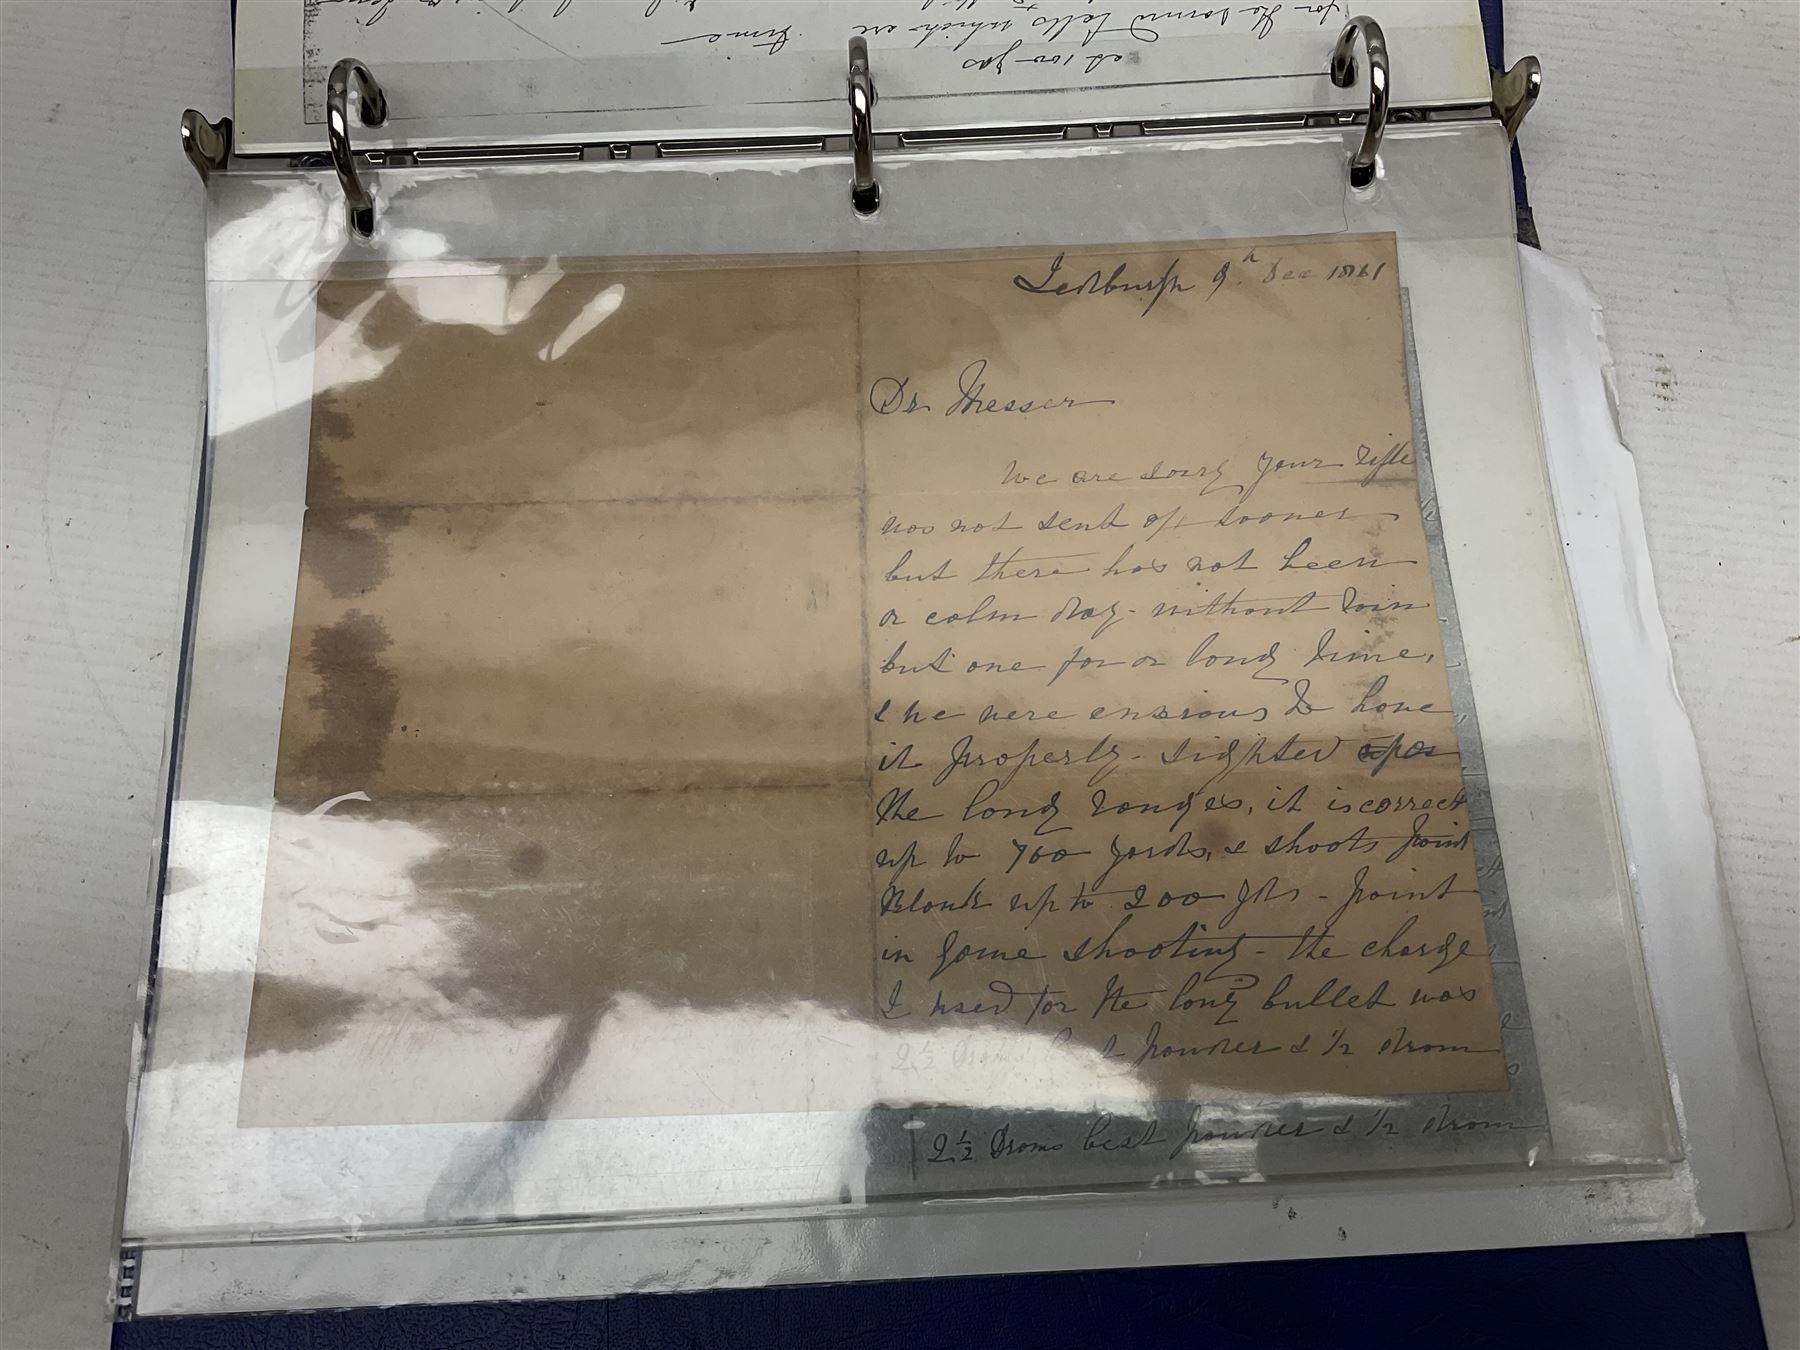 Jedburgh 9th Dec 1861
Dr Messer
We are sorry your rifle
was not sent off sooner
but there has not been
a calm day - without rain
but one for a long time,
& we were anxious to have
it properly - sighted
the long ranges, it is correct
up to 700 yards, & shoots point
Blank up to 200 yds - point
in game shooting - the charge
I used for the long bullet was
2½ Drams best powder & ½ dram
2½ Drams best powder & ½ dram
for the round balls which are
time
at 100 yds